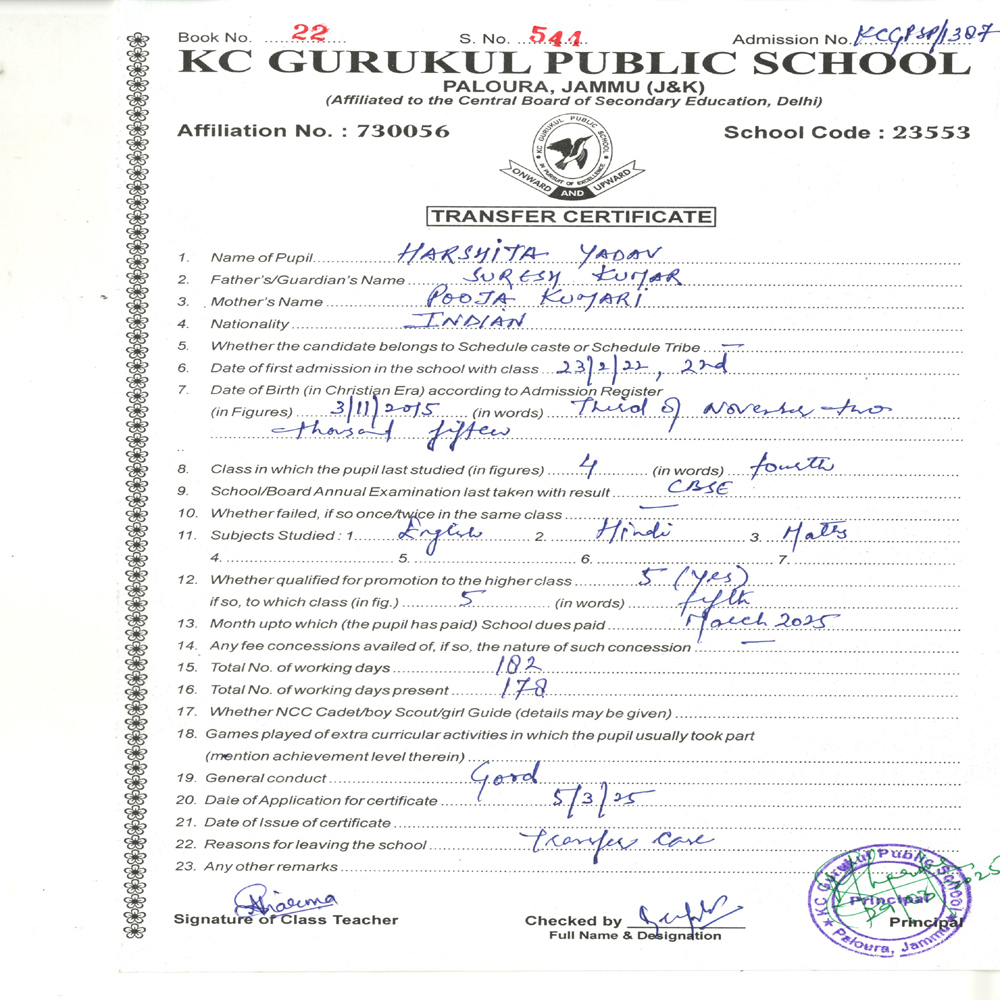 Book No. 22 S. No. 541 Admission No. KCGPSP/1307
KC GURUKUL PUBLIC SCHOOL
PALOURA, JAMMU (J&K)
(Affiliated to the Central Board of Secondary Education, Delhi)
Affiliation No. : 730056 School Code : 23553
KC GURUKUL PUBLIC SCHOOL
IN PURSUIT OF EXCELLENCE
ONWARD AND UPWARD
TRANSFER CERTIFICATE
1. Name of Pupil HARSHITA YADAV
2. Father's/Guardian's Name SURESH KUMAR
3. Mother's Name POOJA KUMARI
4. Nationality INDIAN
5. Whether the candidate belongs to Schedule caste or Schedule Tribe —
6. Date of first admission in the school with class 23/2/22, 2nd
7. Date of Birth (in Christian Era) according to Admission Register
(in Figures) 3/11/2015 (in words) Third of November two
thousand fifteen
8. Class in which the pupil last studied (in figures) 4 (in words) fourth
9. School/Board Annual Examination last taken with result CBSE
10. Whether failed, if so once/twice in the same class —
11. Subjects Studied : 1. English 2. Hindi 3. Maths
4. 5. 6. 7.
12. Whether qualified for promotion to the higher class 5 (Yes)
if so, to which class (in fig.) 5 (in words) fifth
13. Month upto which (the pupil has paid) School dues paid March 2025
14. Any fee concessions availed of, if so, the nature of such concession —
15. Total No. of working days 182
16. Total No. of working days present 178
17. Whether NCC Cadet/boy Scout/girl Guide (details may be given)
18. Games played of extra curricular activities in which the pupil usually took part
(mention achievement level therein)
19. General conduct Good
20. Date of Application for certificate 5/3/25
21. Date of Issue of certificate
22. Reasons for leaving the school Transfer case
23. Any other remarks
Signature of Class Teacher Checked by Principal
Full Name & Designation
KC Gurukul Public School
Principal
Paloura, Jammu